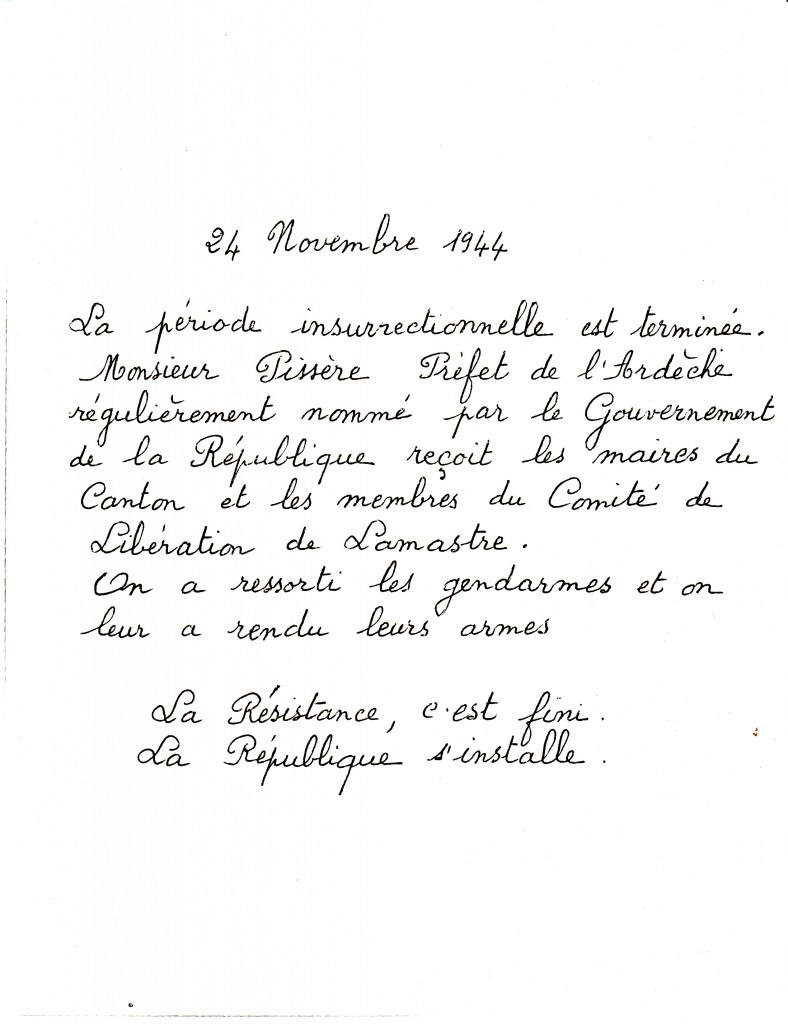 24 Novembre 1944
La période insurrectionnelle est terminée.
Monsieur Pissère Préfet de l'Ardèche
régulièrement nommé par le Gouvernement
de la République reçoit les maires du
Canton et les membres du Comité de
Libération de Lamastre.
On a ressorti les gendarmes et on
leur a rendu leurs armes
La Résistance, c'est fini.
La République s'installe.